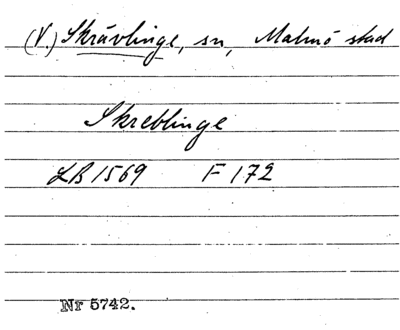 (V.) Skrävlinge, sn, Malmö stad
Skreblinge
LB 1569 F 172
Nr 5742.